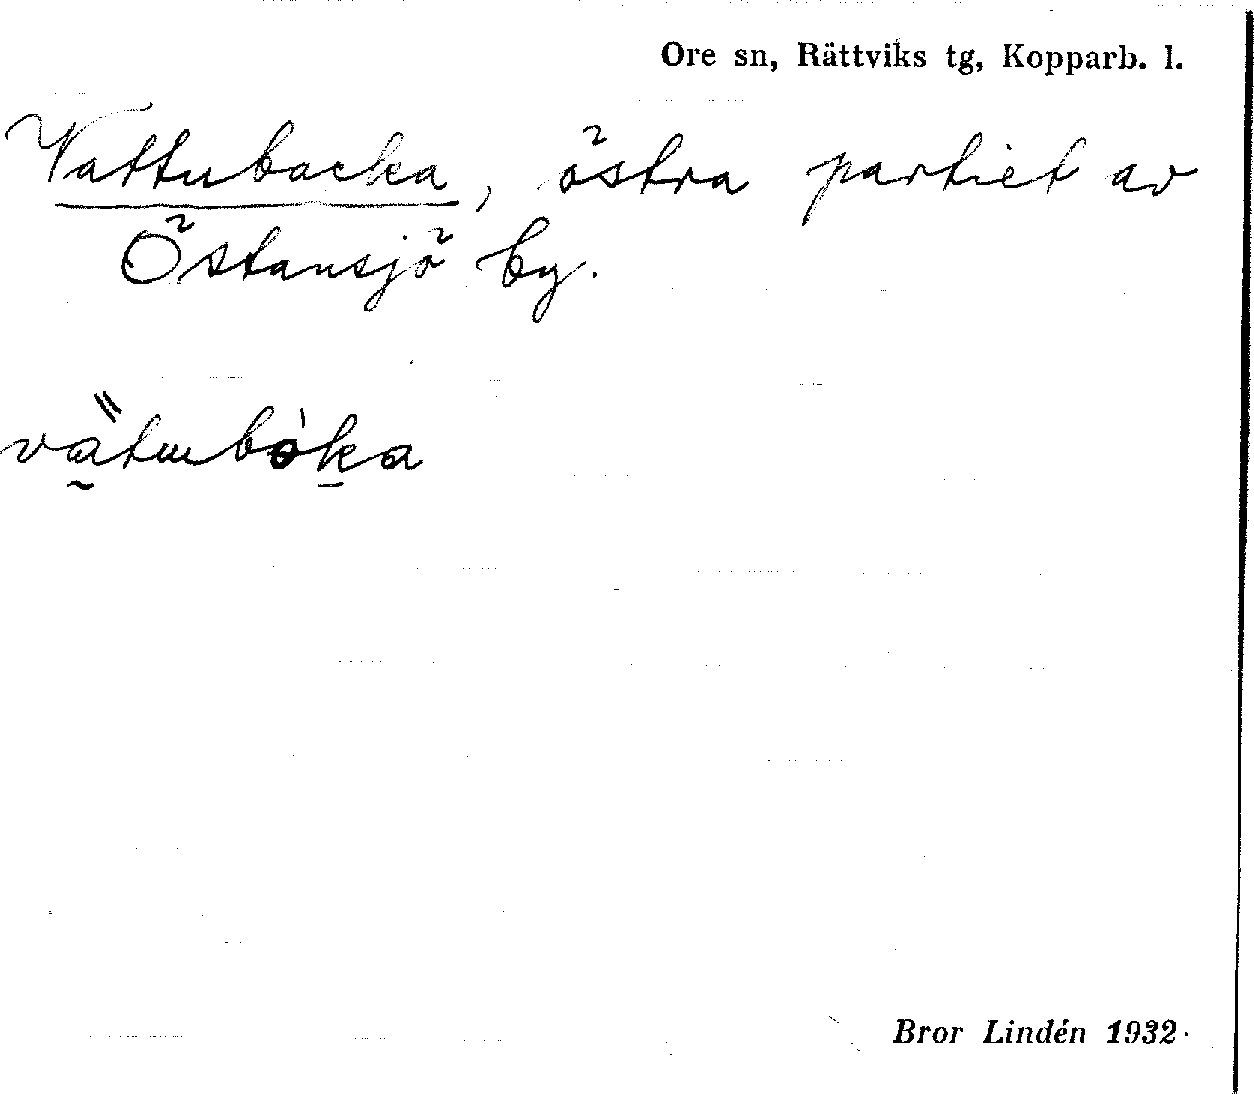 Ore sn, Rättviks tg, Kopparb. l.
Vattubacka, östra partiet av
Östansjö by.
Bror Lindén 1932.